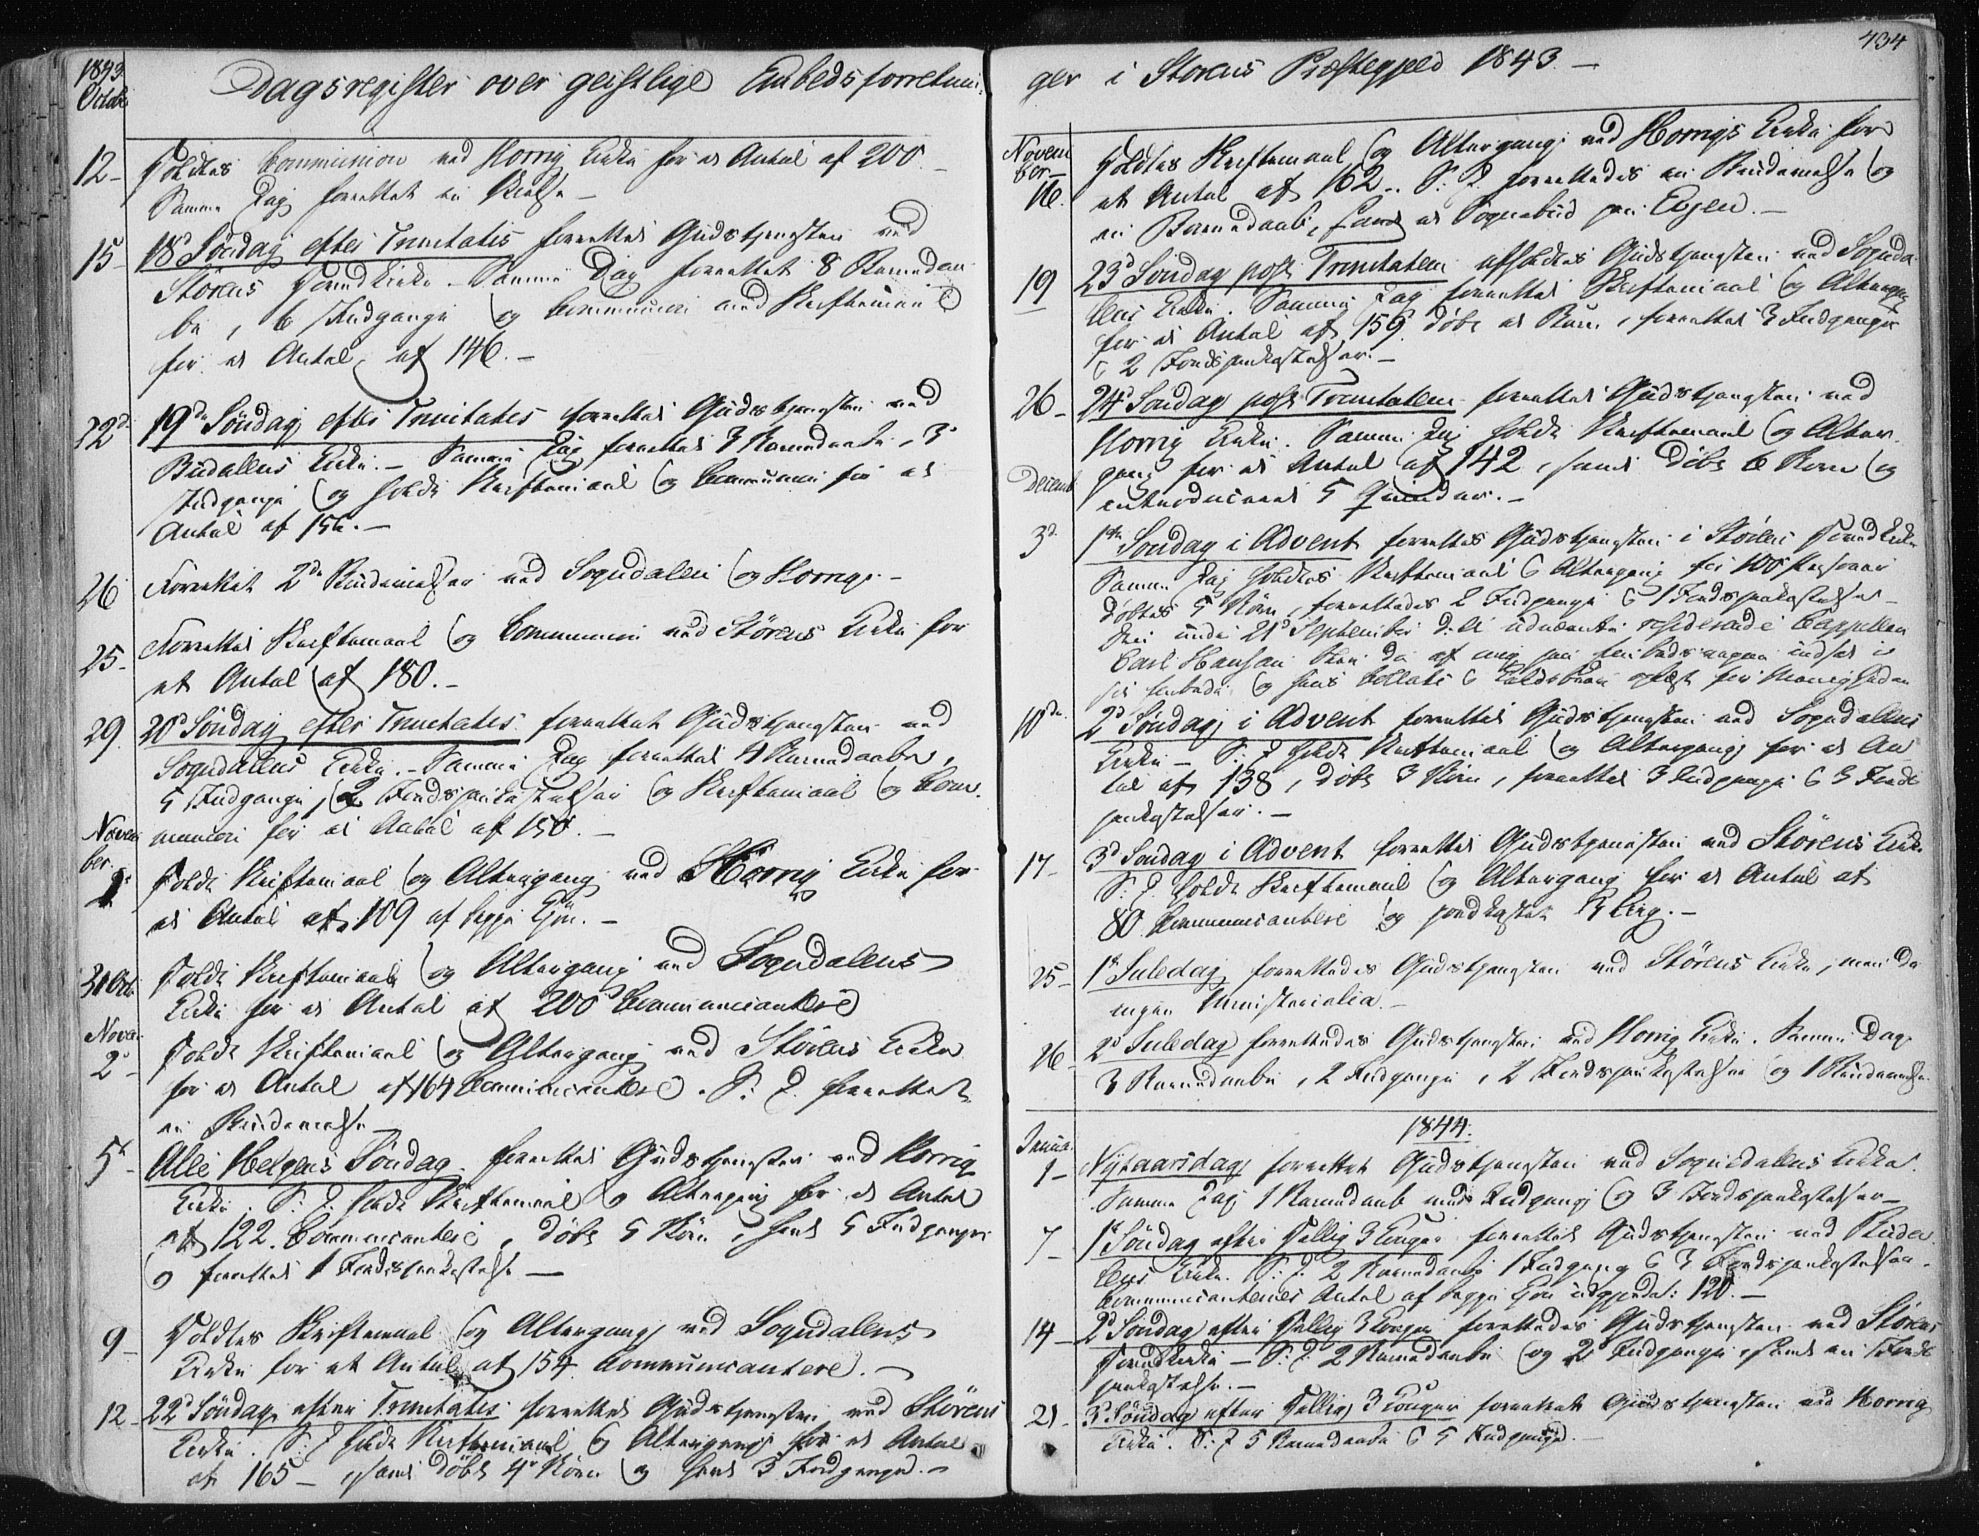 1843
Octobr
Dagsregister over geistlige Embedsforretnin:
12- Holdtes Communion ved Horrig Kirke for et Antal af 200. -
Samme Dag forrettet en Vielse -
15- 18d Søndag efter Trinitatis forrettet Gudstjenesten ved
Størens Hovedkirke. Samme Dag forrettet 8 Barnedaa-
be, 6 Indgange og Communion med Skriftemaal
for et Antal af 146. -
22d 19de Søndag efter Trinitates forrettet Gudstjenesten ved
Budallens Kirke. - Samme Dag forrettet 3 Barnedaabe, 3
Indgange og holdt Skriftemaal og Communion for et
Antal af 156. -
26 Forrettet 2de Bisættelser ved Sogndalen og Horrig. -
25- Forrettet Skriftemaal og Communion ved Størens Kirke for
et Antal af 180. -
29. 20d Søndag efter Trinitatis forrettet Gudstjenesten ved
Sogndallens Kirke. - Samme Dag forrettet 4 Barnedaabe,
5 Indgange, 2 Jordspaakastelser og Skriftemaal og Com-
munion for et Antal af 150. -
Novem
ber.
1 Holdt Skriftemaal og Altergang ved Horrig Kirke for
et Antal af 109 af begge Kjøn. -
31 Octb. Holdt Skriftemaal og Altergang ved Sogndalens
Kirke for et Antal af 200 Communicantere
Novem
2- Holdt Skriftemaal og Altergang ved Størens Kirke
for et Antal af 164 Communicantere. S: D. forrettet
en
5t Alle Helgens Søndag forrettet Gudstjenesten ved Horrig
Kirke. S: D. holdt Skriftemaal og Altergang for et Antal
af 122 Communicantere, døbt 5 Børn, samt 5 Indgange
og forrettet 1 Jordspaakastelse -
9- Holdtes Skriftemaal og Altergang ved Sogndalens
Kirke for et Antal af 154 Communicantere. -
12- 22d Søndag efter Trinitatis forrettet Gudstjenesten ved Størens
Kirke. S: D holdt Skriftemaal og Altergang for et Antal
af 165 - samt døbt 4 Børn og holdt 3 Indgange. -
434
ger i Størens Præstegjeld 1843. -
Novem
ber-
16. Holdtes Skriftemaal og Altergang ved Horrigs Kirke for
et Antal af 162. S: D. forrettedes en og
en Barnedaab, samt et Sognebud paa Evjen. -
19 23d Søndag post Trinitatem afholdtes Gudstjenesten ved Sognda-
lens Kirke. Samme Dag forrettet Skriftemaal og Altergang
for et Antal af 159, døbt et Barn, forrettet 3 Indgange
2 Jordspaakastelser. -
26- 24d Søndag post Trinitatem forrettet Gudstjenesten ved
Horrig Kirke. Samme Dag holdt Skriftemaal og Alter-
gang for et Antal af 142, samt døbt 6 Børn og
introduceret 5 Qvinder. -
Decemb
3d. 1ste Søndag i Advent forrettes Gudstjenesten i Størens Hovedkirke
Samme Dag holdtes Skriftemaal & Altergang for 100 Personer
døbtes 5 Børn, forrettedes 2 Indgange & 1 Jordspaakastelse -
Den under 21d September d: A: udnævnte residerende Cappellan
Carl Hansen blev da af mig paa Embedsvegne indsat i
sit Embede, og hans Collats & Kaldsbrev oplæst for Menigheden
10de. 2d Søndag i Advent forrettet Gudstjenesten ved Sogndallens
Kirke - S: D holdt Skriftemaal og Altergang for et An-
tal af 138, døbt 3 Børn, forrettet 3 Indgange & 3 Jords-
paakastelser. -
17- 3d Søndag i Advent forrettet Gudstjenesten ved Størens Kirke
S: D. holdt Skriftemaal og Altergang for et Antal af
80 Communicantere og jordkastet Liig. -
25- 1ste Juledag forrettedes Gudstjenesten ved Størens Kirke, men da
ingen Ministerialia. -
26- 2d Juledag forrettedes Gudstjenesten ved Horrig Kirke. Samme Dag
3 Barnedaabe, 2 Indgange, 2 Jordspaakastelser og 1
1844.
Janua.
1- Nytaarsdag forrettet Gudstjenesten ved Sognedalens Kirke.
Samme Dag 1 Barnedaab med Indgang og 3 Jordspaakastelser -
7- 1st Søndag efter Hellig 3 Konger forrettet Gudstjenesten ved Buda-
lens Kirke. S: D. 2 Barnedaabe 1 Indgang & 3 Jordspaakastelser.
Communicanternes Antal af begge Kjøn udgjorde: 120. -
14- 2d Søndag efter Hellig 3 Konger forrettedes Gudstjenesten ved Størens
Hovedkirke - S: D. 2 Barnedaabe og 2 Indgange samt en Jords-
paakastelse. -
21- 3d Søndag efter Hellig 3 Konger forrettet Gudstjenesten ved Horrig
Kirke. S: D 5 Barnedaabe & 5 Indgange. -